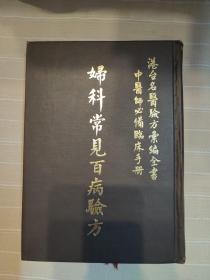 港台名醫驗方彙編全書
中醫師必備臨床手冊
婦科常見百病驗方